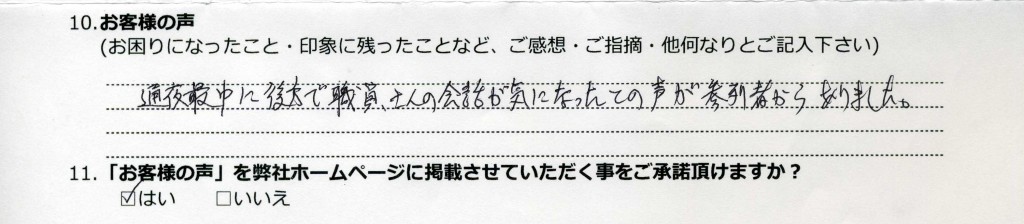 10.お客様の声
(お困りになったこと・印象に残ったことなど、ご感想・ご指摘・他何なりとご記入下さい)
通夜最中に後方で職員、士人の会話が気になったとの声が参列者からありました。
11.「お客様の声」を弊社ホームページに掲載させていただく事をご承諾頂けますか？
☑はい □いいえ